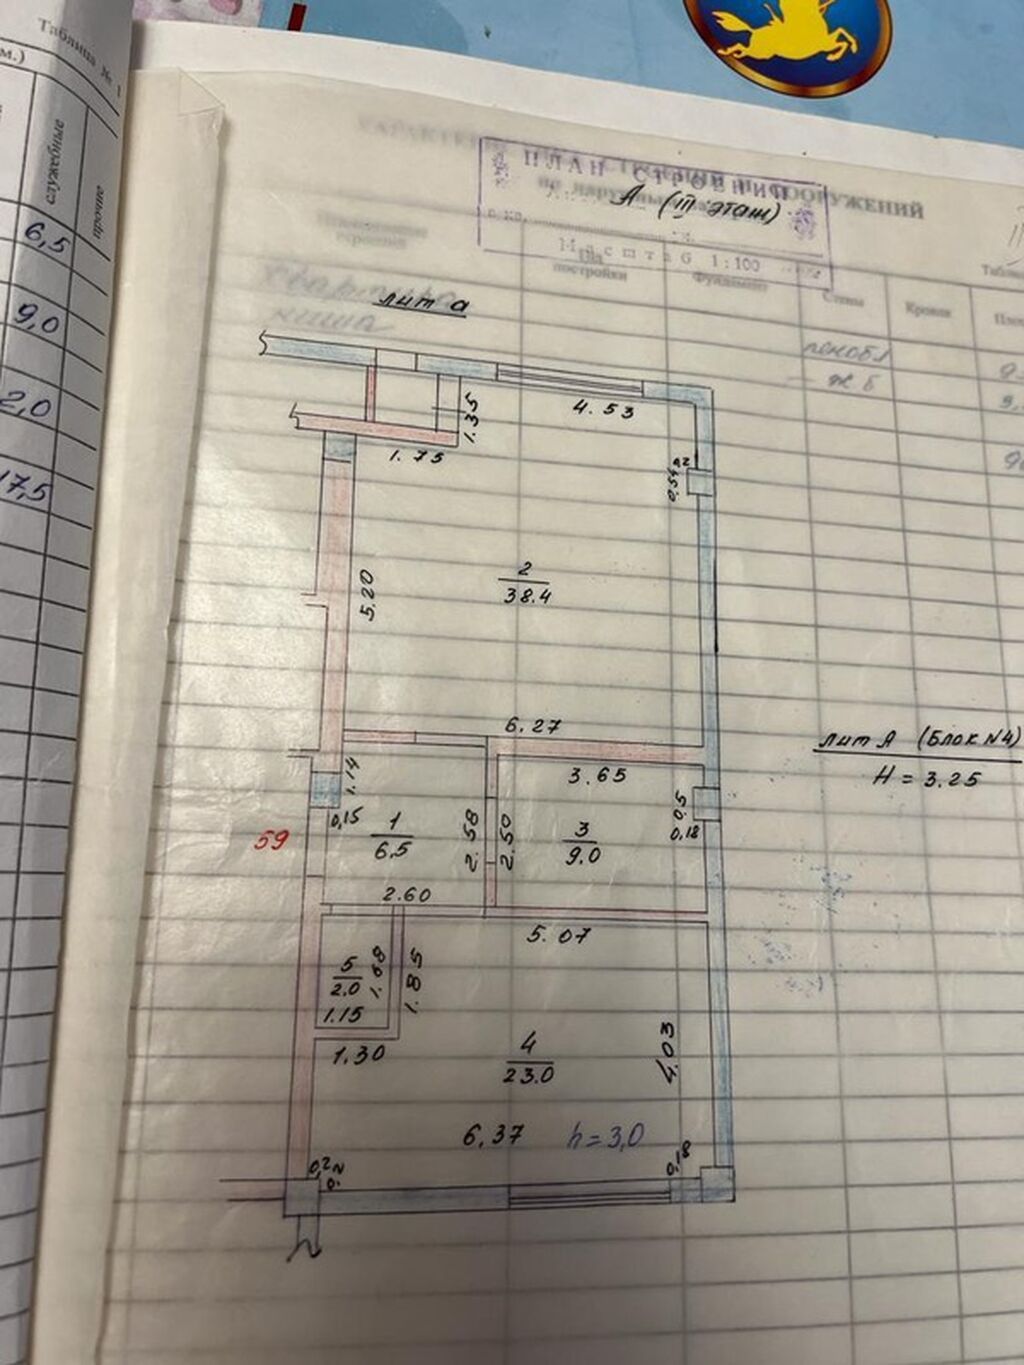 Таблица № 1
м.)
служебные
прочие
6,5
9,0
2,0
17,5
ПЛАН СТРОЕНИЯ
А (III этаж)
Масштаб 1:100
постройки
Фундамент
Стены
Кровля
лит а
4.53
1.35
1.75
0,54
5.20
2
38.4
6.27
3.65
1.14
0,15
59
1
6.5
2.58
2.50
3
9.0
0.5
0,18
2.60
5.07
5
2.0
1.68
1.85
1.15
1.30
4
23.0
4.03
6,37
h=3,0
0,18
лит А (Блок N4)
H = 3.25